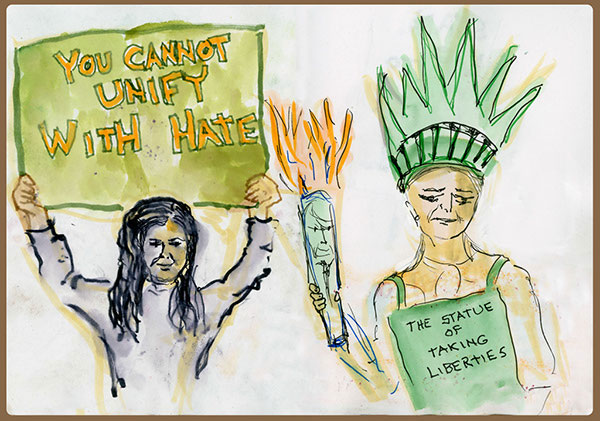 YOU CANNOT
UNIFY
WITH HATE
THE STATUE
OF
TAKING
LIBERTIES